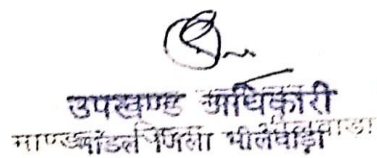 उपखण्ड अधिकारी
माण्डल जिला भीलवाड़ा